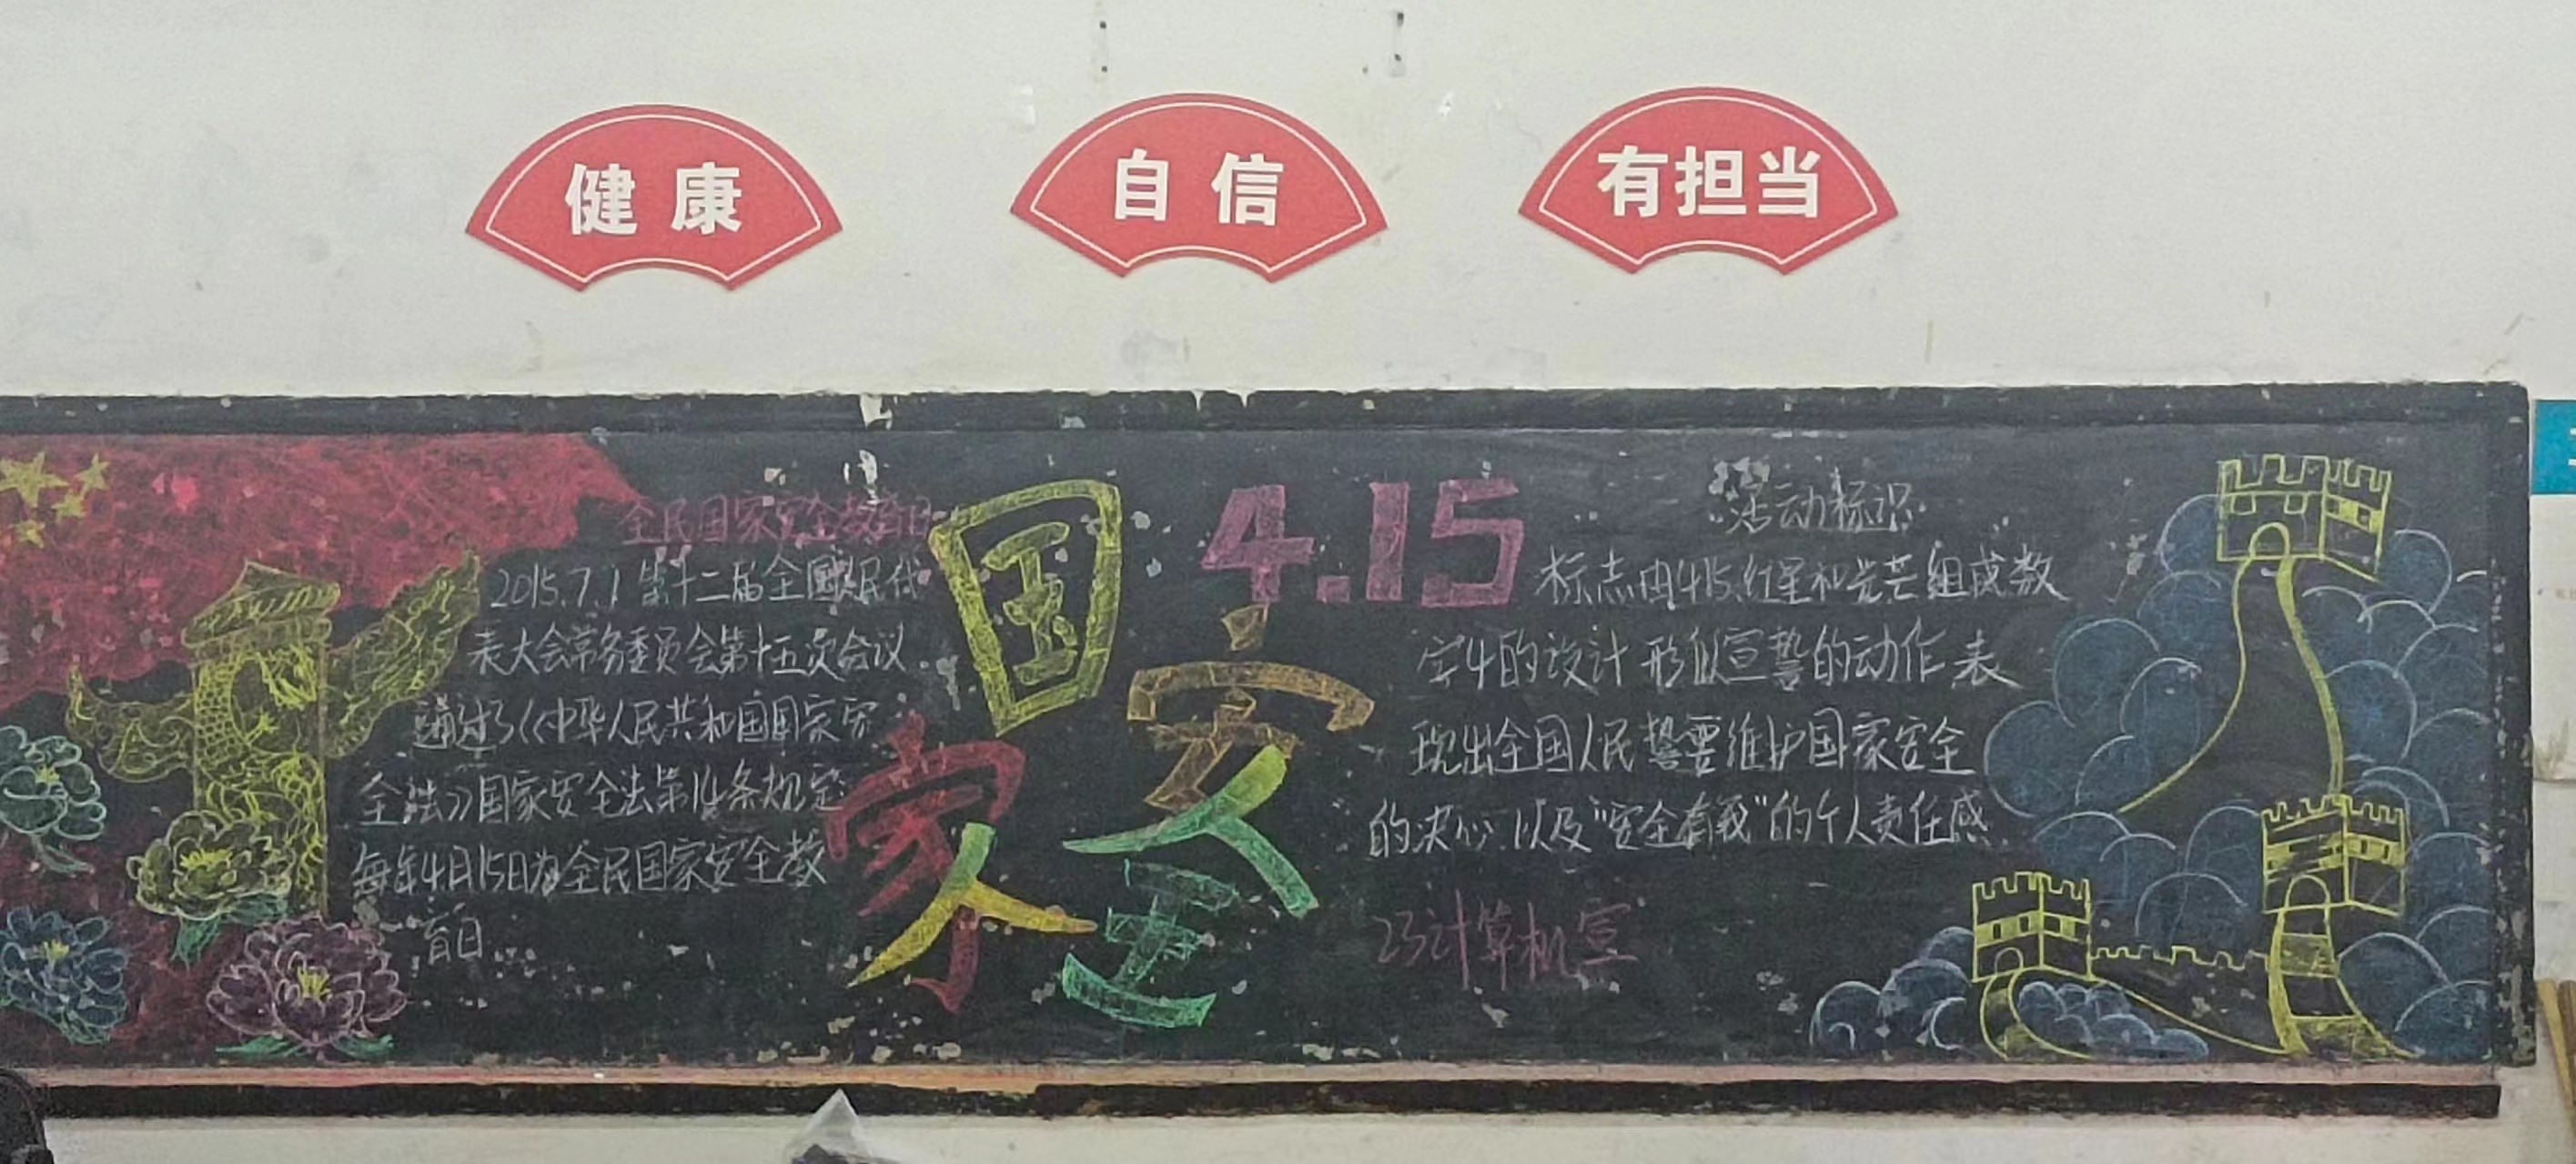 健康
自信
有担当
全民国家安全教育日
2015.7.1 第十二届全国人民代
表大会常务委员会第十五次会议
通过了《中华人民共和国国家安
全法》国家安全法第14条规定
每年4月15日为全民国家安全教
育日
国家安全
4.15
活动标识
标志由4.15、红星和光芒组成数
字4的设计形似宣誓的动作表
现出全国人民誓要维护国家安全
的决心以及"安全有我"的个人责任感
23计算机宣